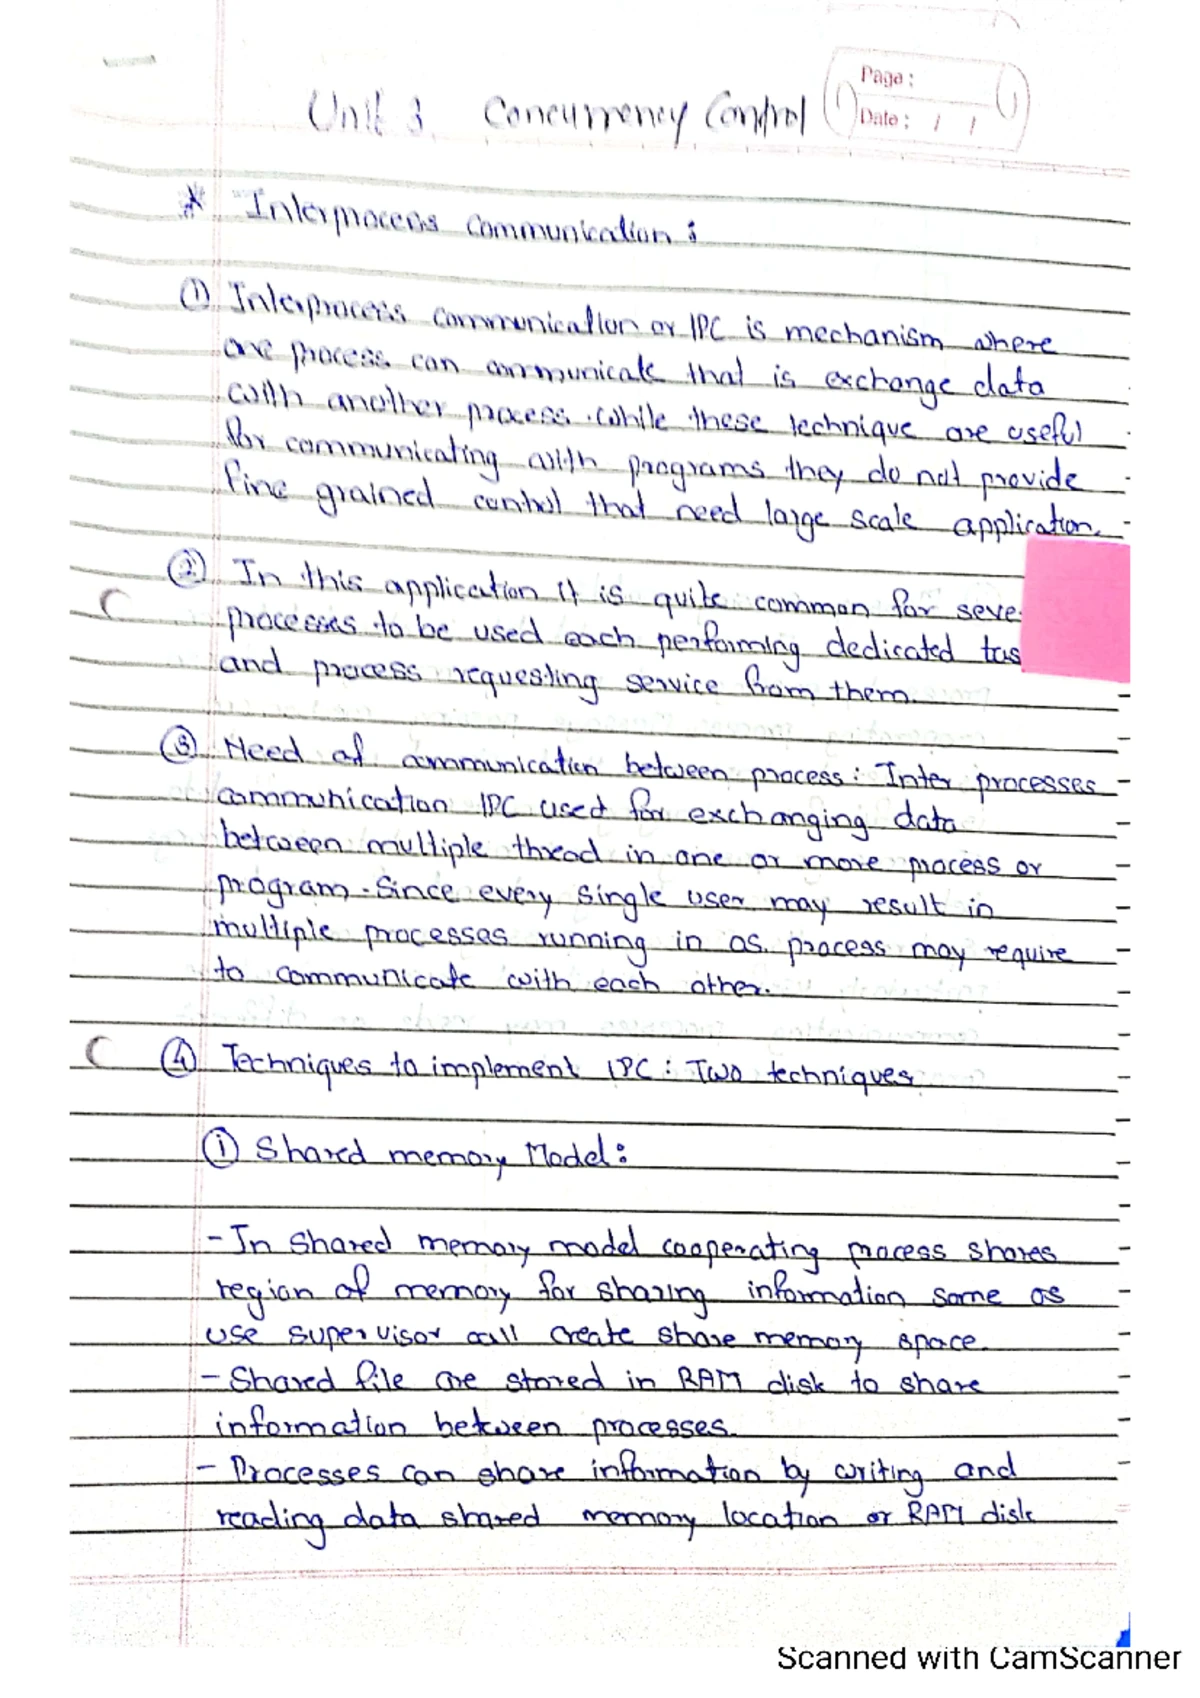 Page :
Unit 3. Concurrency Control
Date : / /
* Interprocess communication :
① Interprocess communication or IPC is mechanism where
one process can communicate that is exchange data
with another process. While these technique are useful
for communicating with programs they do not provide
fine grained control that need large scale application.
② In this application it is quite common for seve
processes to be used each performing dedicated tas
and process requesting service from them.
③ Need of communication between process : Inter processes
communication IPC used for exchanging data
between multiple thread in one or more process or
program. Since every single user may result in
multiple processes running in os process may require
to communicate with each other.
④ Techniques to implement IPC : Two techniques
ⓘ Shared memory Model :
- In shared memory model cooperating process shares
region of memory for sharing information some os
use supervisor call create share memory space.
- Shared file are stored in RAM disk to share
information between processes.
- Processes can share information by writing and
reading data shared memory location or RAM disk
Scanned with CamScanner